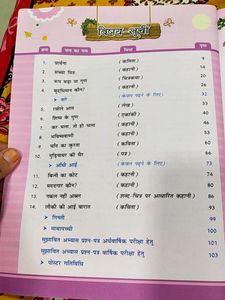 विषय सूची
क्रम पाठ का नाम विधा पृष्ठ
1. प्रार्थना (कविता) 9
2. सच्चा मित्र (कहानी) 14
3. रूप बड़ा या गुण (चित्रकथा) 20
4. बुद्धिमान कौन? (कहानी) 26
बरे (केवल पढ़ने के लिए) 32
5. रसीले आम (लेख) 33
6. शिष्य के गुण (एकांकी) 40
7. कर भला, तो हो भला (कहानी) 47
8. भविष्यवाणी (कहानी) 53
9. चाँद का कुरता (कविता) 60
10. गुड़ियाघर की सैर (पत्र) 66
आँधी आई (केवल पढ़ने के लिए) 73
11. बिल्ली का कोट (कहानी) 74
12. मददगार कौन? (कहानी) 80
13. नकल नहीं अक्ल (शब्द-चित्र पर आधारित कहानी) 86
14. लौकी की आई बारात (कविता) 93
गिनती 99
माथापच्ची 99
सुझावित अभ्यास प्रश्न-पत्र अर्धवार्षिक परीक्षा हेतु 100
सुझावित अभ्यास प्रश्न-पत्र वार्षिक परीक्षा हेतु 101
पोस्टर गतिविधि 103